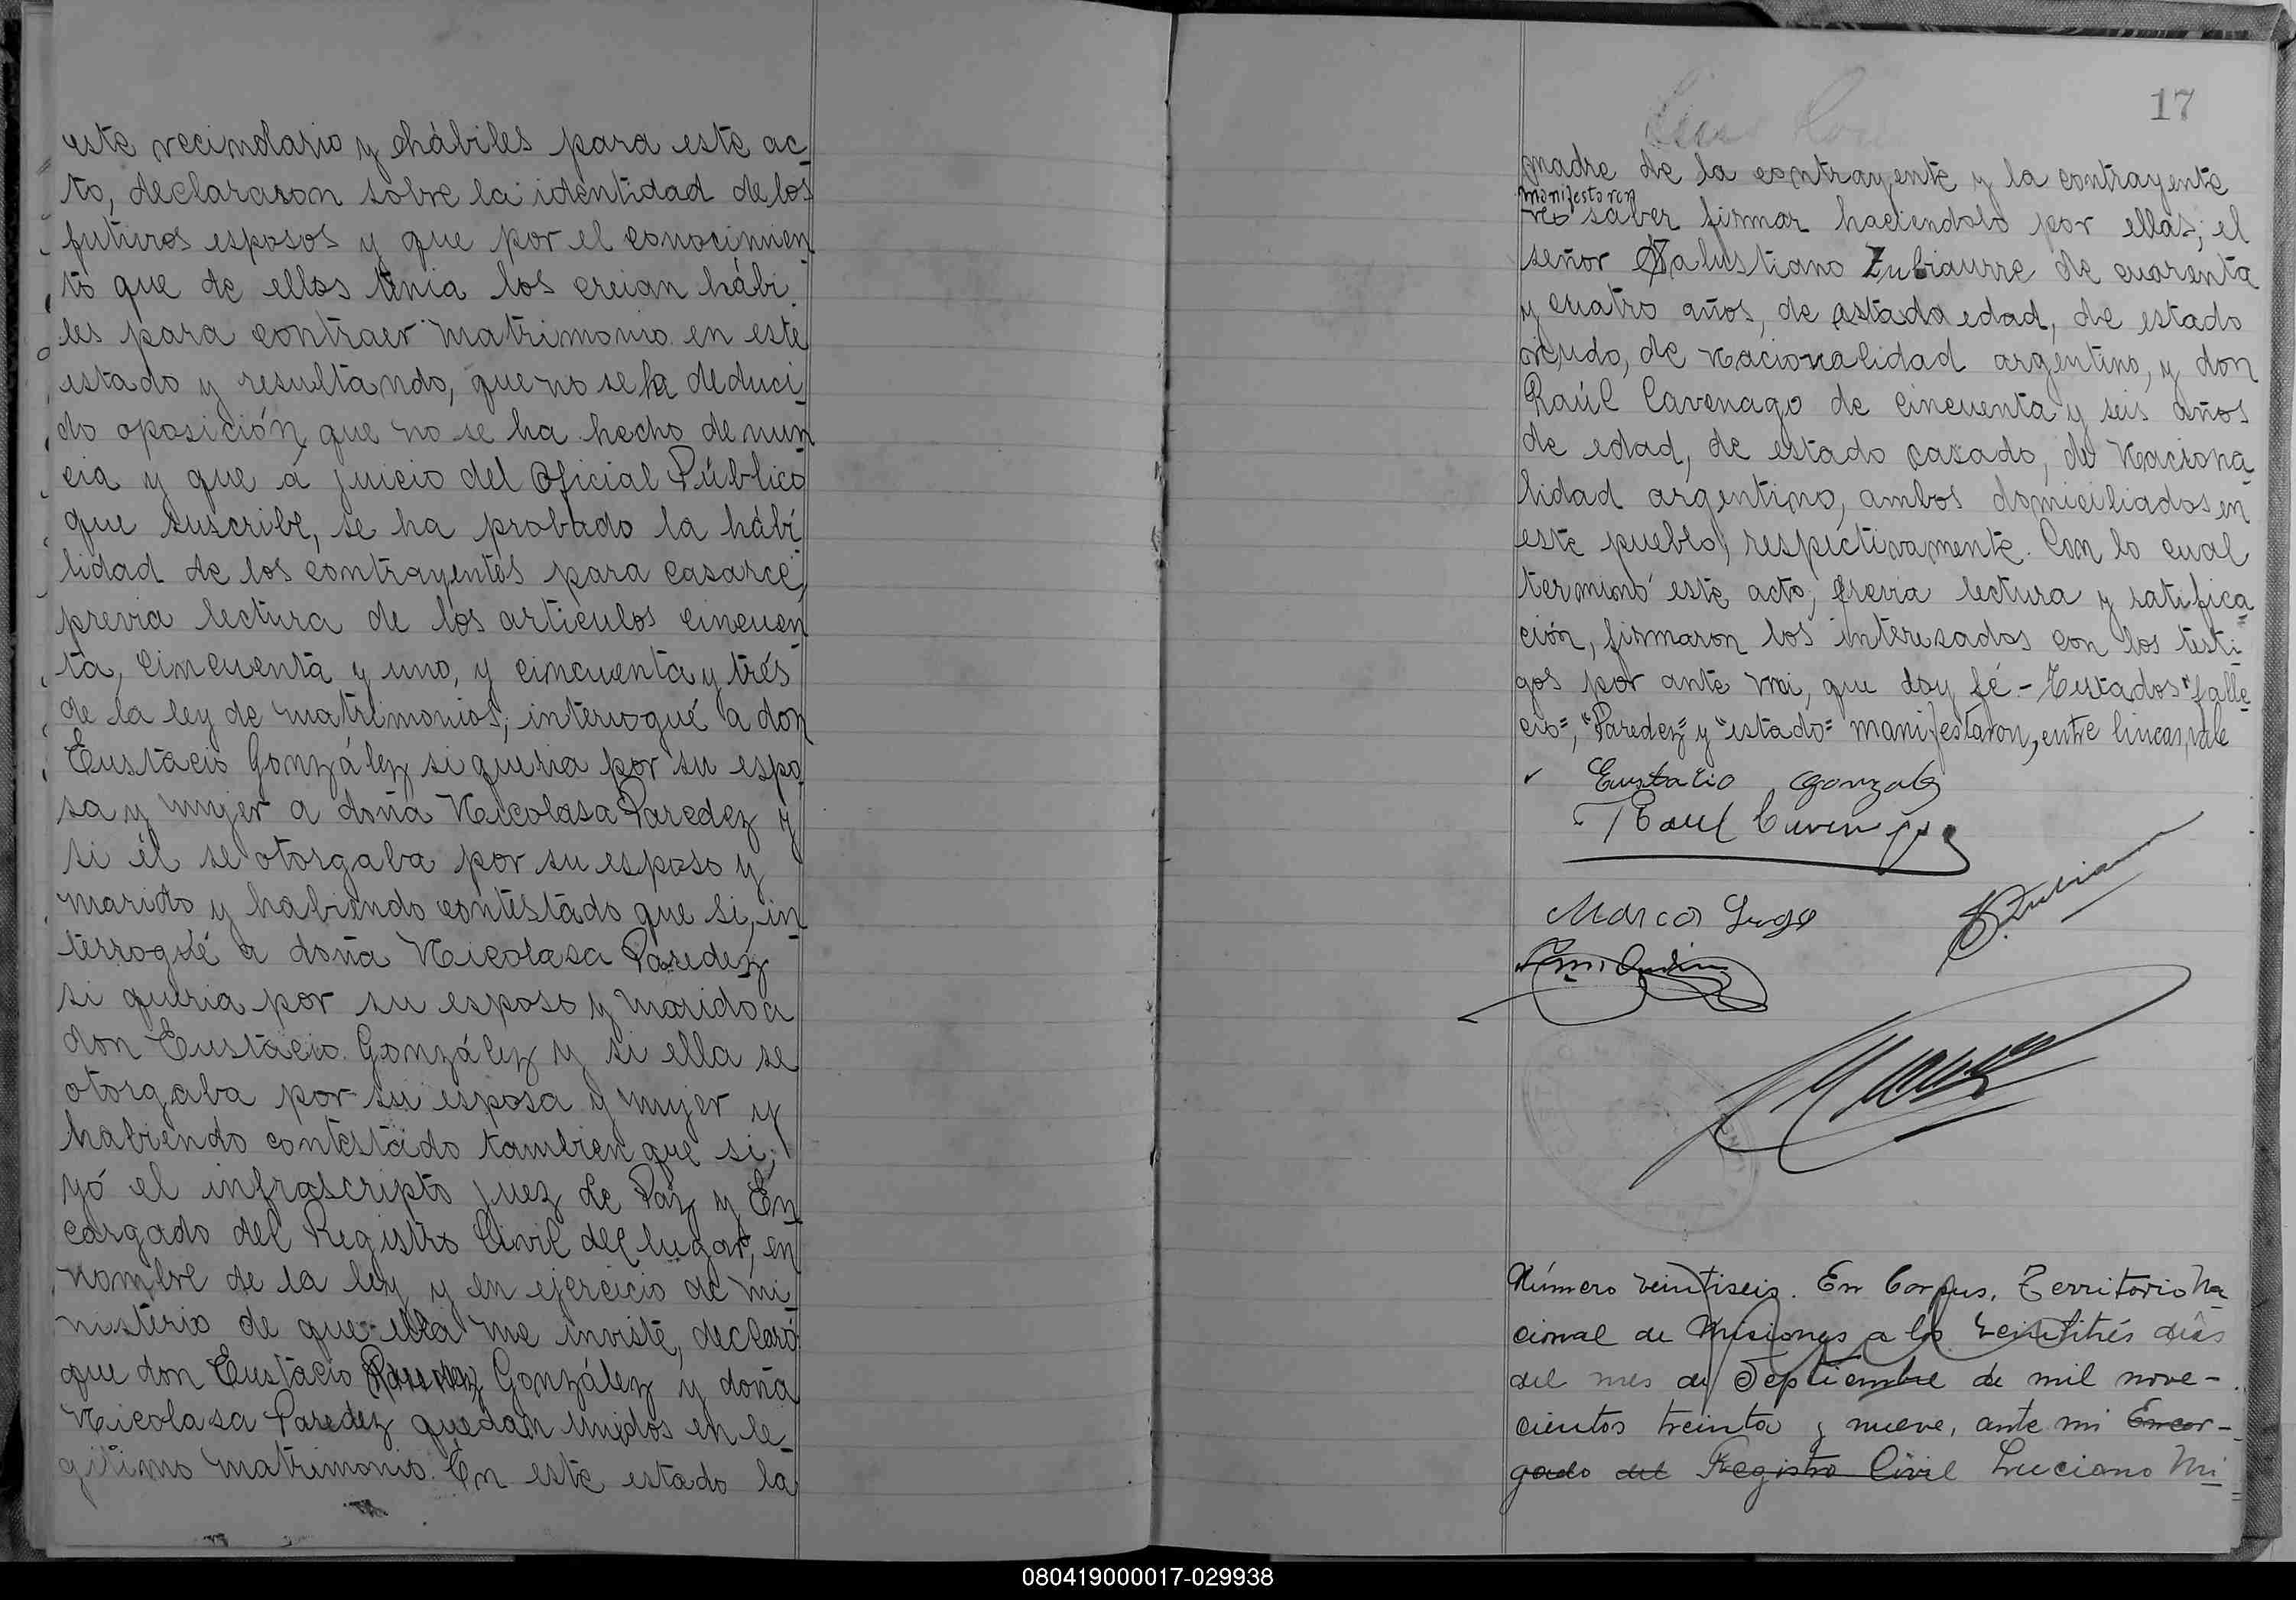 este vecindario y hábiles para este ac
to, declararon sobre la identidad de los
futuros esposos y que por el conocimien
to que de ellos tenia los creian hábi
les para contraer matrimonio en este
estado y resultando, que no se ha deduci
do oposición que no se ha hecho denun
cia y que á juicio del Oficial Público
que suscribe, se ha probado la hábi
lidad de los contrayentes para casarce,
previa lectura de los articulos cincuen
ta, cincuenta y uno, y cincuenta y trés
de la ley de matrimonios; interrogué a don
Eustacio González si queria por su espo
sa y mujer a doña Nicolasa Paredez y
si él se otorgaba por su esposo y
marido y habiendo contestado que si, in
terrogué a doña Nicolasa Paredez
si queria por su esposo y marido a
don Eustacio González y si ella se
otorgaba por su esposa y mujer y
habiendo contestado tambien que si,
yó el infrascripto juez de Paz y En
cargado del Registro Civil del lugar, en
nombre de la ley y en ejercicio de mi
nisterio de que ella me inviste, declaró
que don Eustacio González y doña
Nicolasa Paredez quedan unidos en le
gitimo matrimonio. En este estado la
17
madre de la contrayente y la contrayente
manifestaron
no saber firmar haciendolo por ellas; el
señor Salustiano Zubiaurre de cuarenta
y cuatro años, de estado edad, de estado
viudo, de nacionalidad argentino, y don
Raúl Cavenago de cincuenta y seis años
de edad, de estado casado, de naciona
lidad argentino, ambos domiciliados en
este pueblo, respectivamente. Con lo cual
terminó este acto, previa lectura y ratifica
ción, firmaron los interesados con los testi
gos por ante mi, que doy fé - Testados "falle
cio", "Paredez" y "estado" manifestaron, entre lineas, vale
Eustacio Gonzalez
Raul Cavenago
Marcos Lugo
S. Zubiaurre
Número veintiseis. En Corpus, Territorio Na
cional de Misiones a los veintitrés dias
del mes de Septiembre de mil nove-
cientos treinta y nueve, ante mi Encar-
gado del Registro Civil Luciano Mi
080419000017-029938